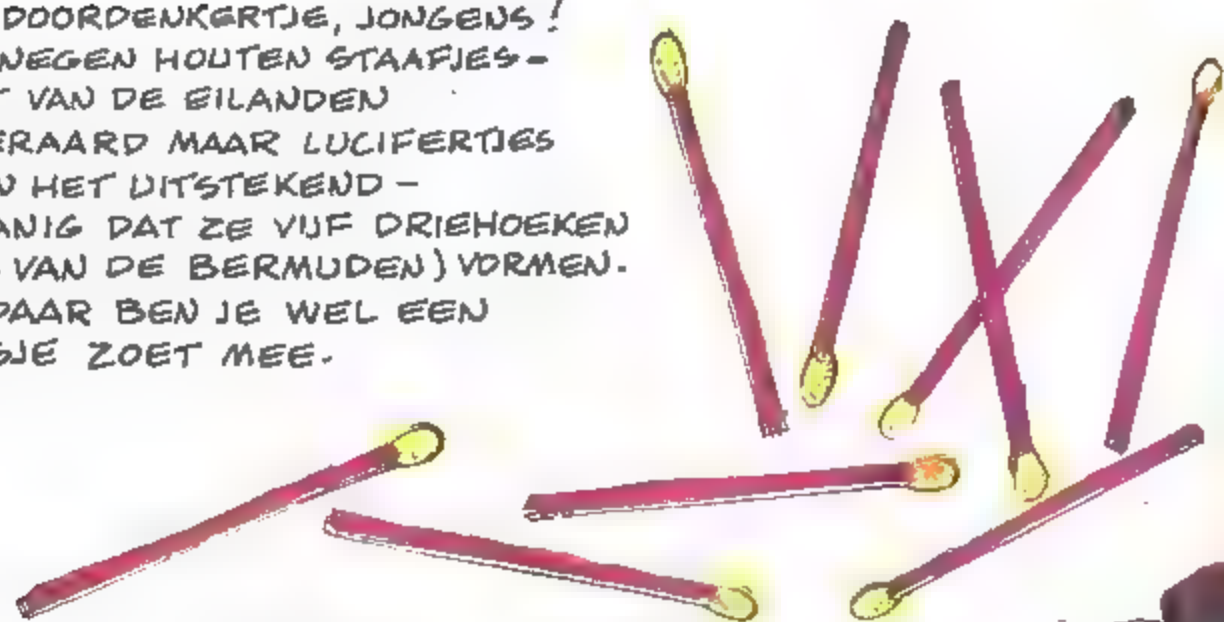 DOORDENKERTJE, JONGENS!
NEGEN HOUTEN STAAFJES-
VAN DE EILANDEN
MAAR LUCIFERTJES
HET UITSTEKEND -
DAT ZE VIJF DRIEHOEKEN
VAN DE BERMUDEN) VORMEN.
DAAR BEN JE WEL EEN
ZOET MEE.